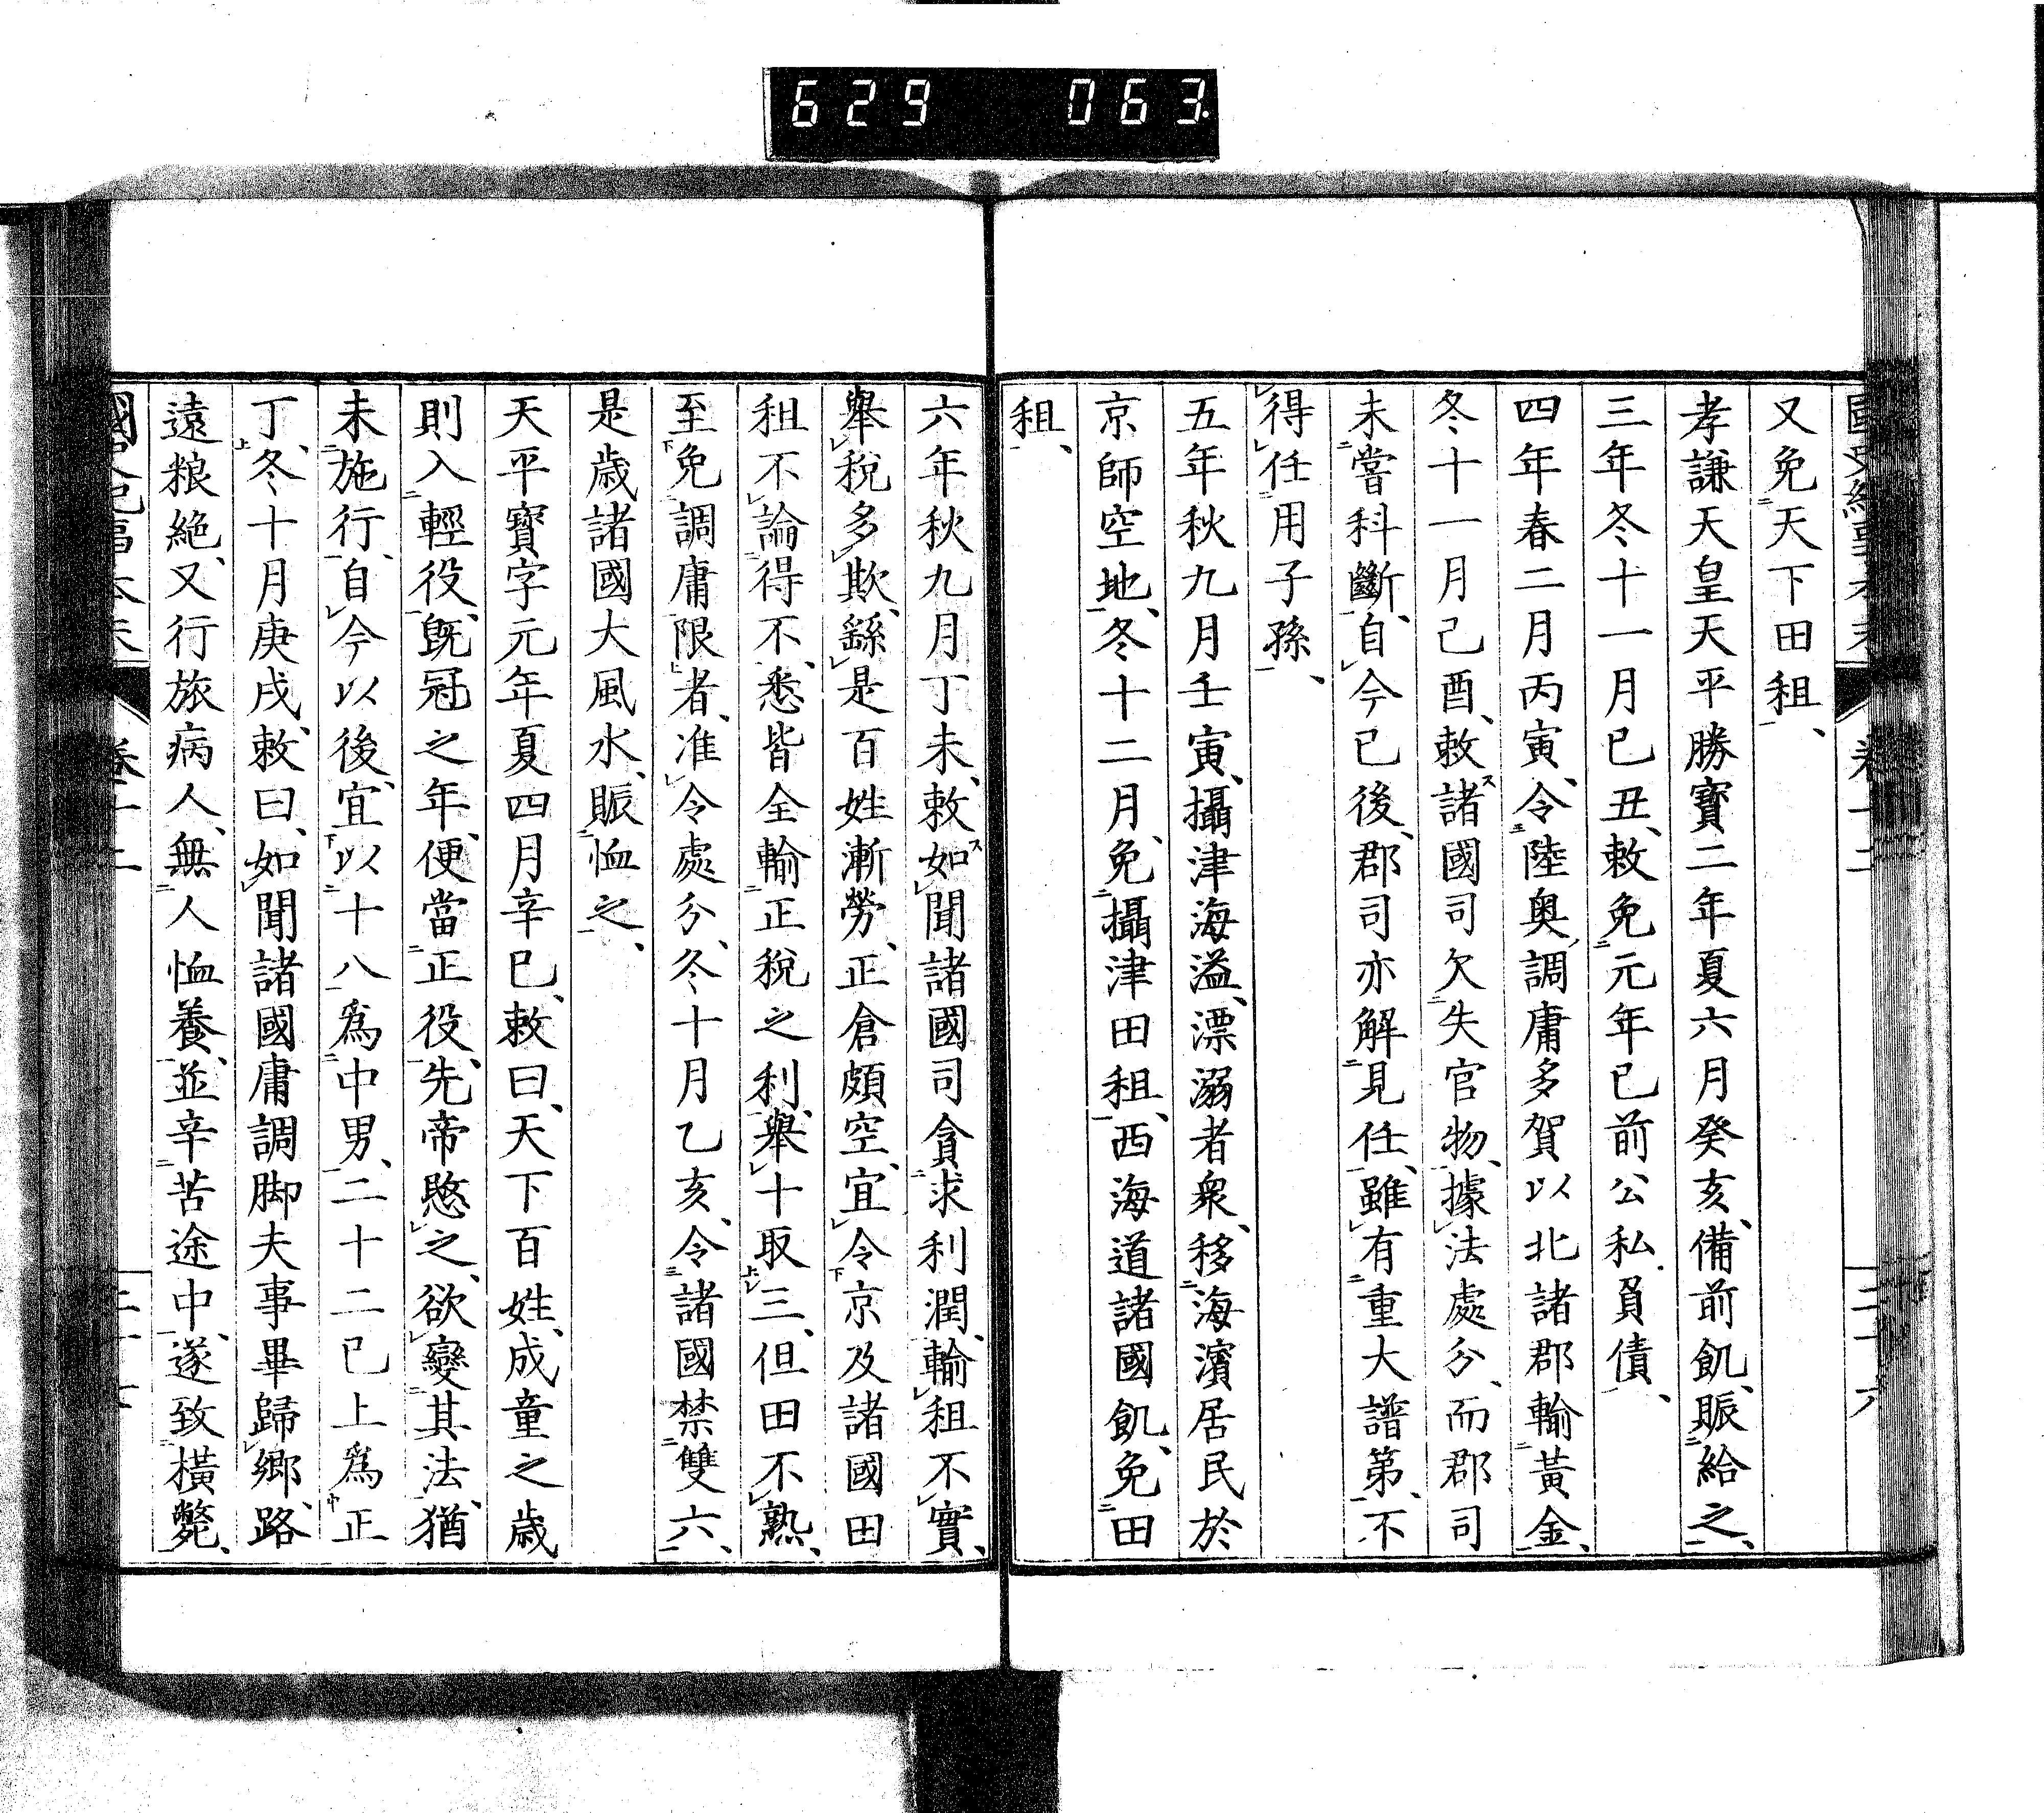 629 063
又免天下田租、
孝謙天皇天平勝寶二年夏六月癸亥、備前飢、賑給之、
三年冬十一月己丑、敕免元年已前公私負債、
四年春二月丙寅、令陸奥調庸多賀以北諸郡輸黃金、
冬十一月己酉、敕諸國司欠失官物、據法處分、而郡司
未嘗科斷、自今已後、郡司亦解見任、雖有重大譜第、不
得任用子孫、
五年秋九月壬寅、攝津海溢、漂溺者衆、移海濱居民於
京師空地、冬十二月、免攝津田租、西海道諸國飢、免田
租、
六年秋九月丁未、敕如聞諸國司貪求利潤、輸租不實、
舉稅多欺、繇是百姓漸勞、正倉頗空、宜令京及諸國田
租不論得不、悉皆全輸正稅之利、舉十取三、但田不熟、
至免調庸限者、准令處分、冬十月乙亥、令諸國禁雙六、
是歲諸國大風水、賑恤之、
天平寶字元年夏四月辛巳、敕曰、天下百姓、成童之歲
則入輕役、既冠之年、便當正役、先帝愍之、欲變其法、猶
未施行、自今以後、宜以十八爲中男、二十二已上爲正
丁、冬十月庚戌、敕曰、如聞諸國庸調脚夫事畢歸鄉、路
遠粮絶、又行旅病人、無人恤養、並辛苦途中、遂致橫斃、